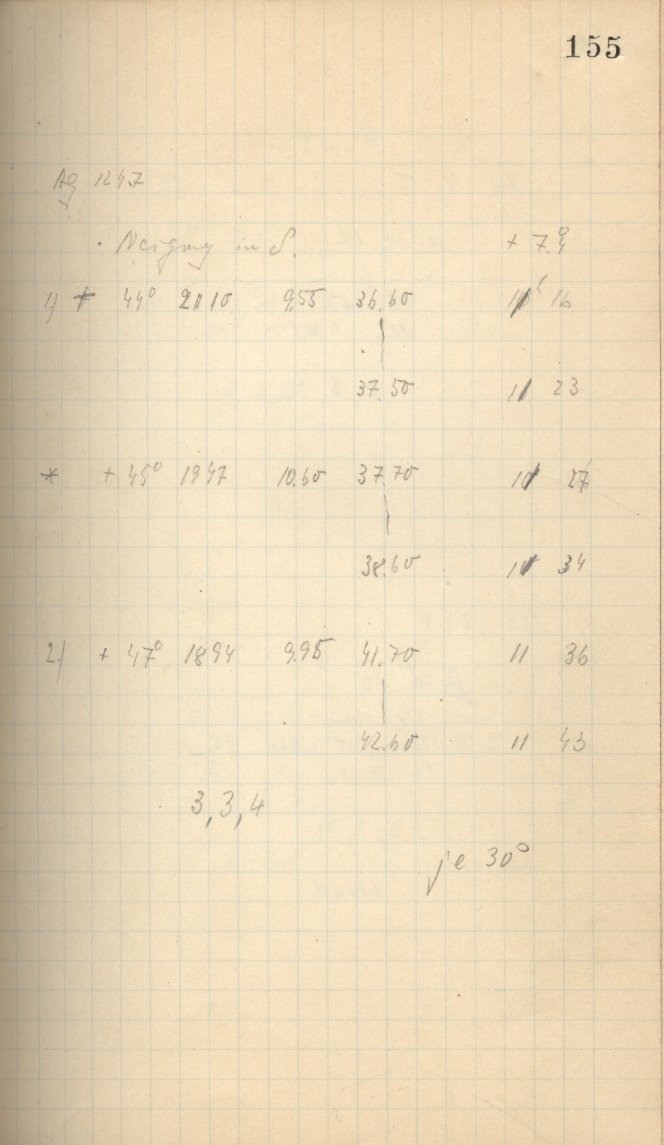 155
Ag 1247
Neigung in δ. + 7.°4
1) + 44° 2110 9.55 36.60 11 16
37.50 11 23
* + 45° 1947 10.60 37.70 11 27
38.60 11 34
2) + 47° 1894 9.95 41.70 11 36
42.60 11 43
3, 3, 4
je 30°